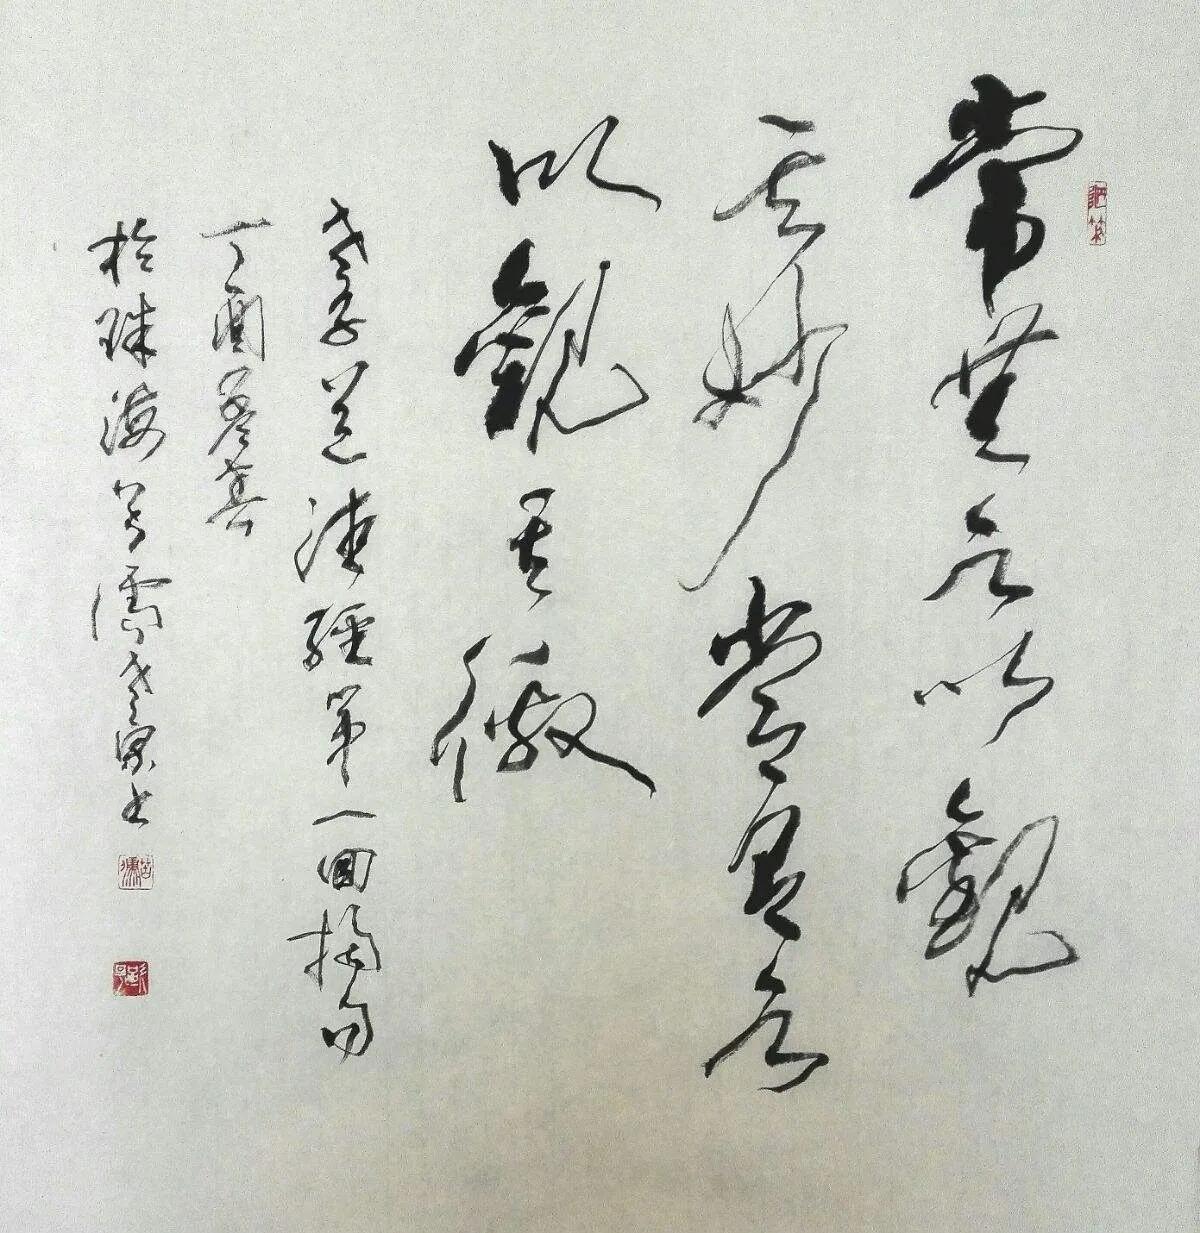 常無欲以觀
其妙常有欲
以觀其徼
老子道德經第一回摘句
丁酉
於珠海苦儒老書
苦儒